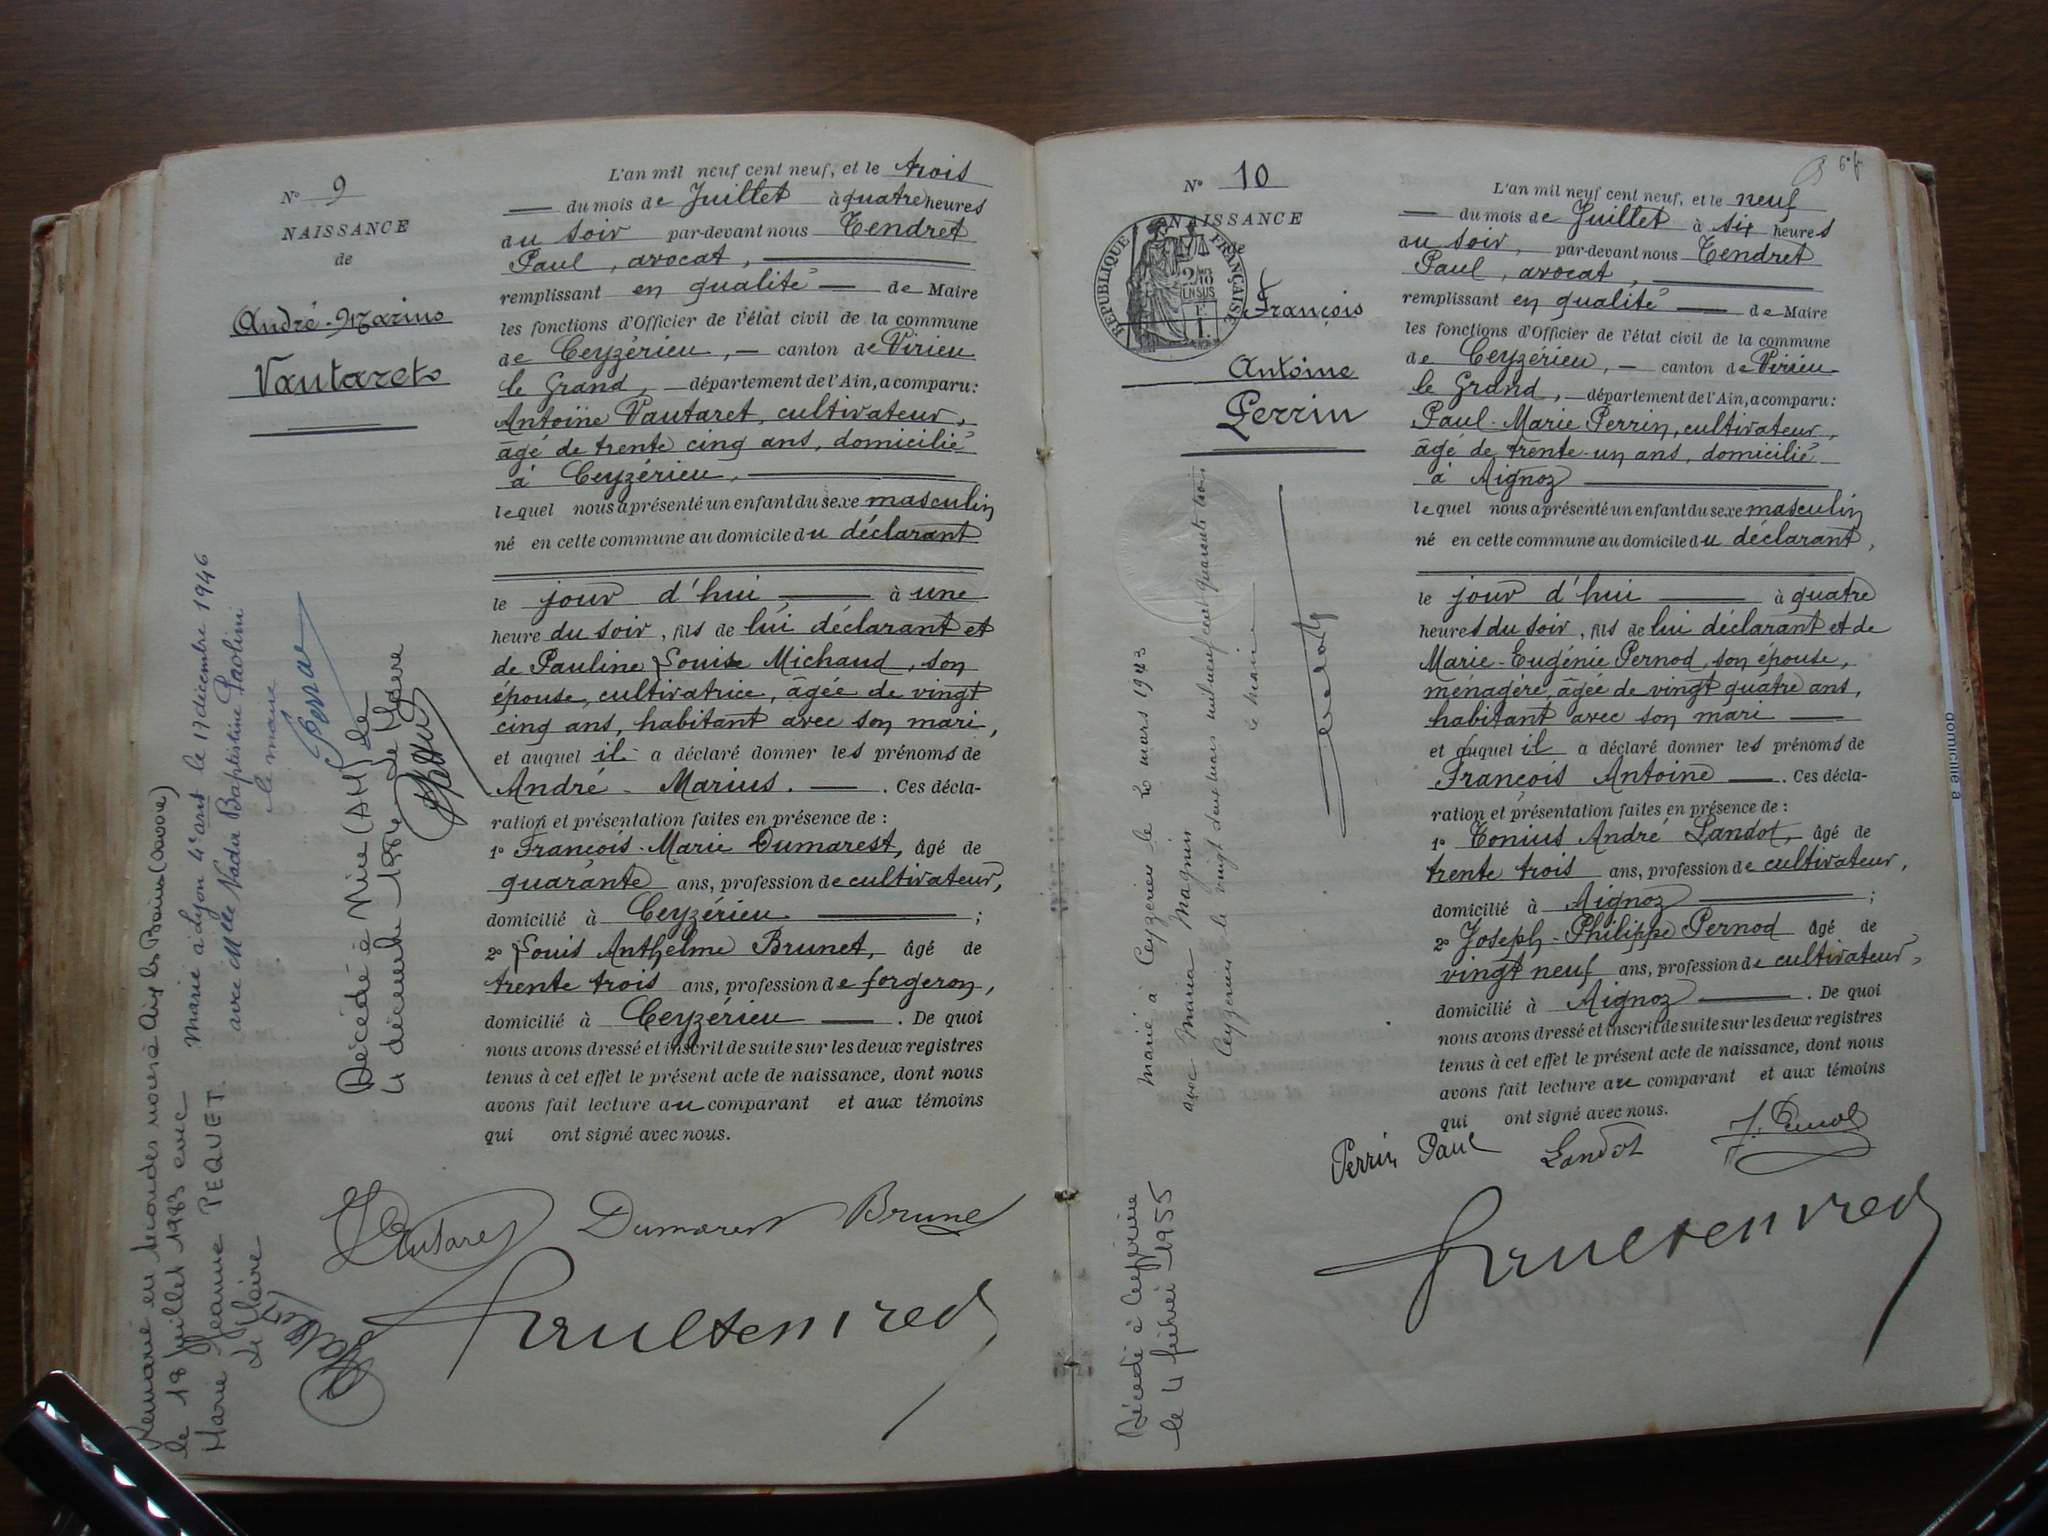 Nº 9
NAISSANCE
de
André-Marius
Vautaret
L'an mil neuf cent neuf, et le trois
du mois de Juillet à quatre heures
du soir par-devant nous Tendret
Paul, avocat,
remplissant en qualité de Maire
les fonctions d'Officier de l'état civil de la commune
de Ceyzérieu, canton de Virieu
le Grand, département de l'Ain, a comparu:
Antoine Vautaret, cultivateur,
âgé de trente cinq ans, domicilié
à Ceyzérieu,
lequel nous a présenté un enfant du sexe masculin
né en cette commune au domicile du déclarant
le jour d'hui à une
heure du soir, fils de lui déclarant et
de Pauline Louise Michaud, son
épouse, cultivatrice, âgée de vingt
cinq ans, habitant avec son mari,
et auquel il a déclaré donner les prénoms de
André - Marius. Ces décla-
ration et présentation faites en présence de :
1º François-Marie Dumarest, âgé de
quarante ans, profession de cultivateur,
domicilié à Ceyzérieu ;
2º Louis Anthelme Brunet, âgé de
trente trois ans, profession de forgeron,
domicilié à Ceyzérieu . De quoi
nous avons dressé et inscrit de suite sur les deux registres
tenus à cet effet le présent acte de naissance, dont nous
avons fait lecture au comparant et aux témoins
qui ont signé avec nous.
Vautaret Dumarest Brunet
Remarié en secondes noces à Aix les Bains (Savoie)
le 18 Juillet 1983 avec
Marie Jeanne PEQUET.
Le Maire
Marié à Lyon 4e arrt le 17 décembre 1946
avec Melle Nadia Baptistine Paolini
le maire
Décédé à Nice (AM) le
4 décembre 1986 le Maire
Nº 10
NAISSANCE
RÉPUBLIQUE FRANÇAISE
François
Antoine
Perrin
L'an mil neuf cent neuf, et le neuf
du mois de Juillet à six heures
du soir, par-devant nous Tendret
Paul, avocat,
remplissant en qualité de Maire
les fonctions d'Officier de l'état civil de la commune
de Ceyzérieu, canton de Virieu
le Grand, département de l'Ain, a comparu:
Paul-Marie Perrin, cultivateur,
âgé de trente-un ans, domicilié
à Aignoz
lequel nous a présenté un enfant du sexe masculin
né en cette commune au domicile du déclarant,
le jour d'hui à quatre
heures du soir, fils de lui déclarant et de
Marie-Eugénie Pernod, son épouse,
ménagère, âgée de vingt quatre ans,
habitant avec son mari
et auquel il a déclaré donner les prénoms de
François Antoine . Ces décla-
ration et présentation faites en présence de :
1º Tonius André Landot, âgé de
trente trois ans, profession de cultivateur,
domicilié à Aignoz ;
2º Joseph-Philippe Pernod âgé de
vingt neuf ans, profession de cultivateur,
domicilié à Aignoz . De quoi
nous avons dressé et inscrit de suite sur les deux registres
tenus à cet effet le présent acte de naissance, dont nous
avons fait lecture au comparant et aux témoins
qui ont signé avec nous.
Perrin Paul Landot J. Pernod
Marié à Ceyzérieu le 20 mars 1943
avec Maria Magnin
Ceyzérieu le vingt deux mars mil neuf cent quarante trois
le maire
Décédé à Ceyzérieu
le 4 février 1955
domicilié à